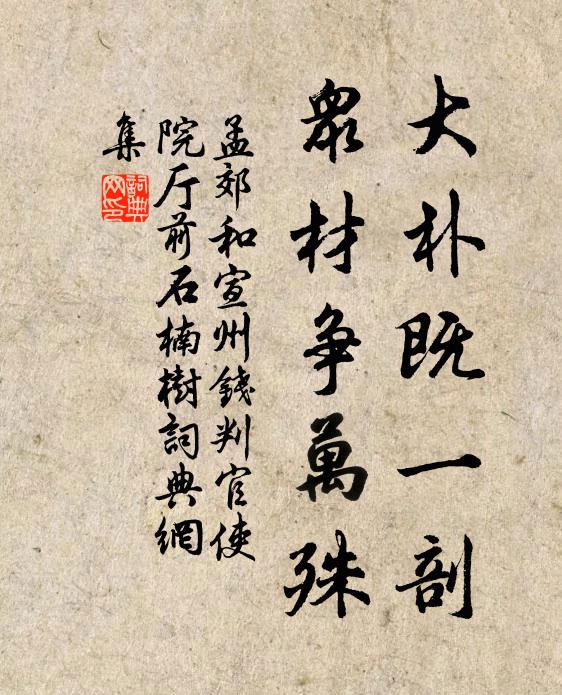 大朴既一剖
眾材争萬殊
孟郊和宣州錢判官使
院厅前石楠樹詞典網
集
詞典
网印